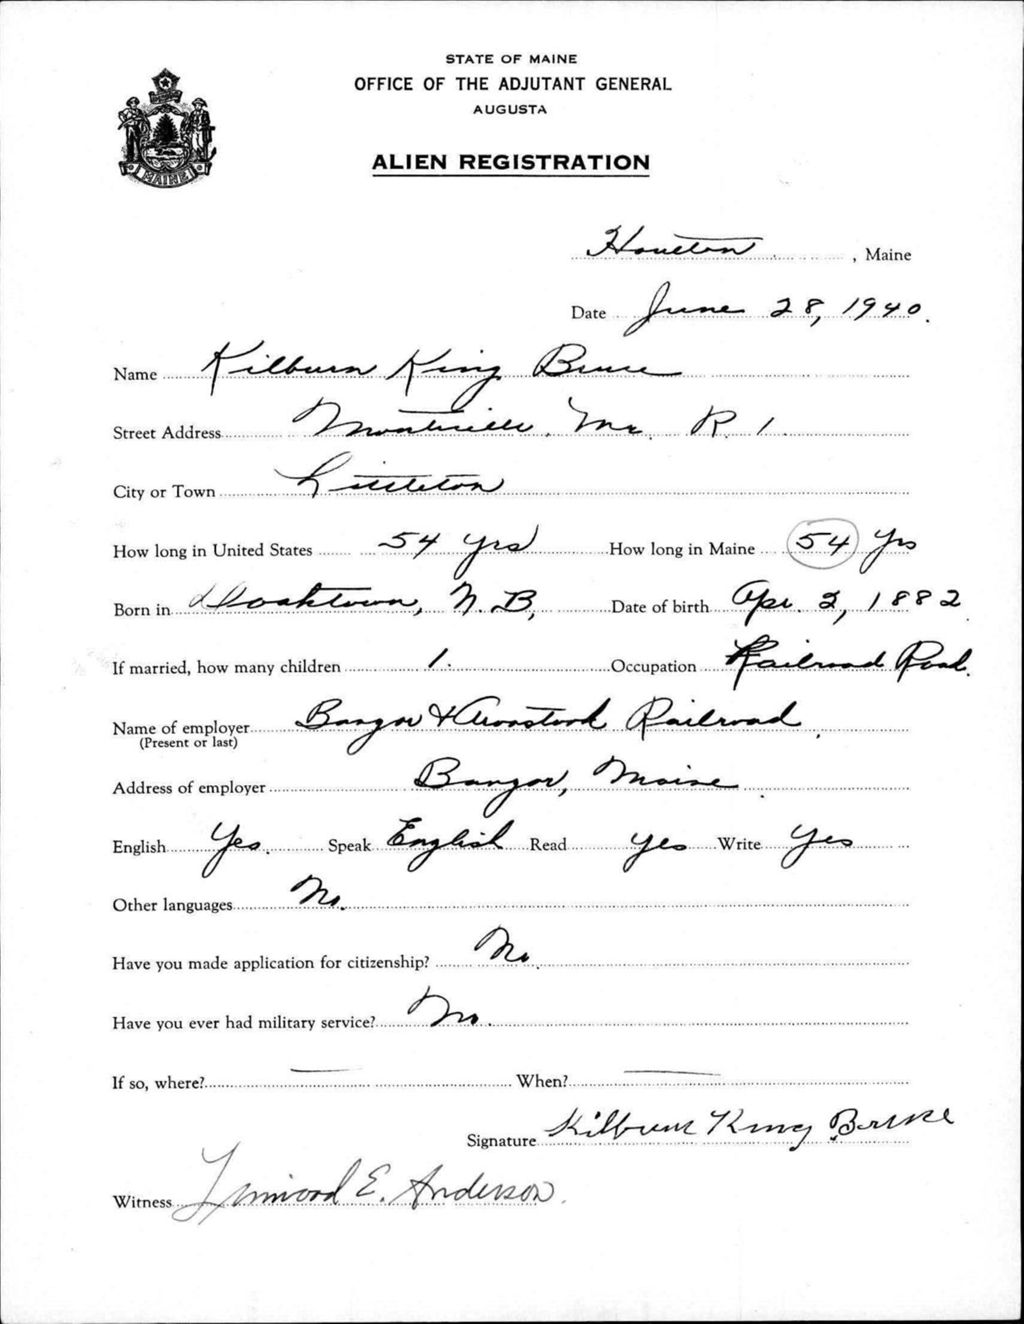 STATE OF MAINE
OFFICE OF THE ADJUTANT GENERAL
AUGUSTA
ALIEN REGISTRATION
MAINE
Houlton, Maine
Date June 28, 1940.
Name Kilburn King Bruce
Street Address Monticello, Me. R. 1.
City or Town Littleton
How long in United States 54 yrs How long in Maine 54 yrs
Born in Doaktown, N. B, Date of birth Apr. 2, 1882
If married, how many children 1. Occupation Railroad Road.
Name of employer Bangor & Aroostook Railroad
(Present or last)
Address of employer Bangor, Maine
English Yes. Speak English Read yes Write Yes
Other languages No.
Have you made application for citizenship? No.
Have you ever had military service? No.
If so, where? — When? —
Signature Kilburn King Bruce
Witness Linwood E. Anderson.